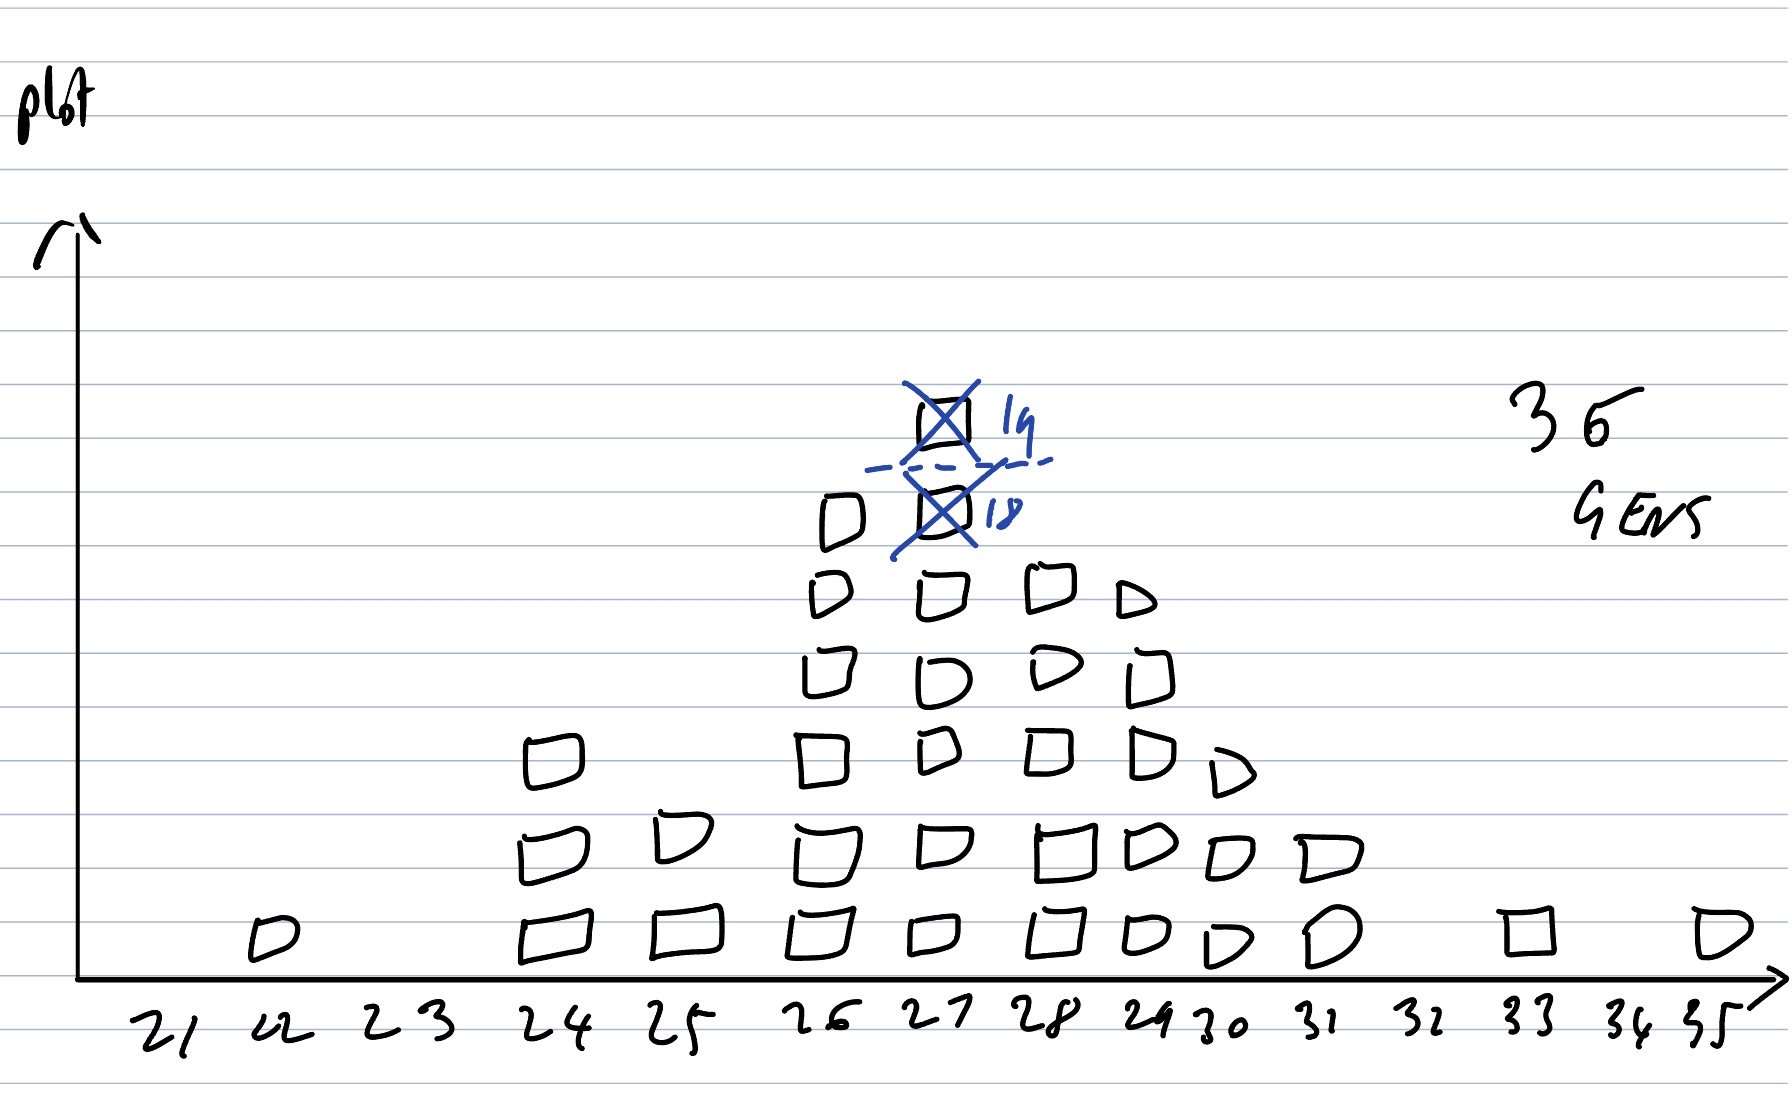 plot
19
36
18
GENS
21 22 23 24 25 26 27 28 29 30 31 32 33 34 35